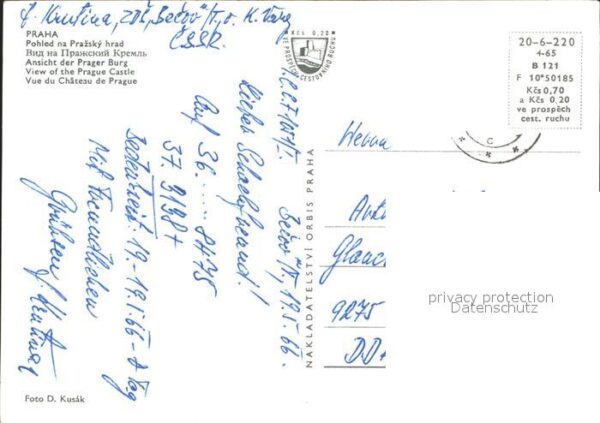 J. Krutina, ZDŠ, "Bečov"/T., o. K. Vary
ČSSR.
PRAHA
Pohled na Pražský hrad
Вид на Пражский Кремль
Ansicht der Prager Burg
View of the Prague Castle
Vue du Château de Prague
Kčs 0,20
VE PROSPĚCH CESTOVNÍHO RUCHU
20-6-220
4-65
B 121
F 10*50185
Kčs 0,70
a Kčs 0,20
ve prospěch
cest. ruchu
Bečov n/T, 19.I.66.
Lieber Schachfreund!
Auf 36. .... Sf475
37. 3138+
Bedenkzeit: 19.-19.I.66 - 0 Tag
Mit freundlichen
Grüssen J. Krutina
NAKLADATELSTVÍ ORBIS PRAHA
Herrn
Glauc
9275
DD
privacy protection
Datenschutz
Foto D. Kusák